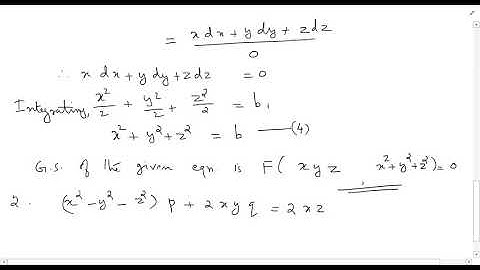 = x dx + y dy + z dz / 0
∴ x dx + y dy + z dz = 0
Integrating, x²/2 + y²/2 + z²/2 = b₁
x² + y² + z² = b —— (4)
G.S. of the given eqn is F( xyz , x²+y²+z²) = 0
2. (x² – y² – z²) p + 2xy q = 2xz